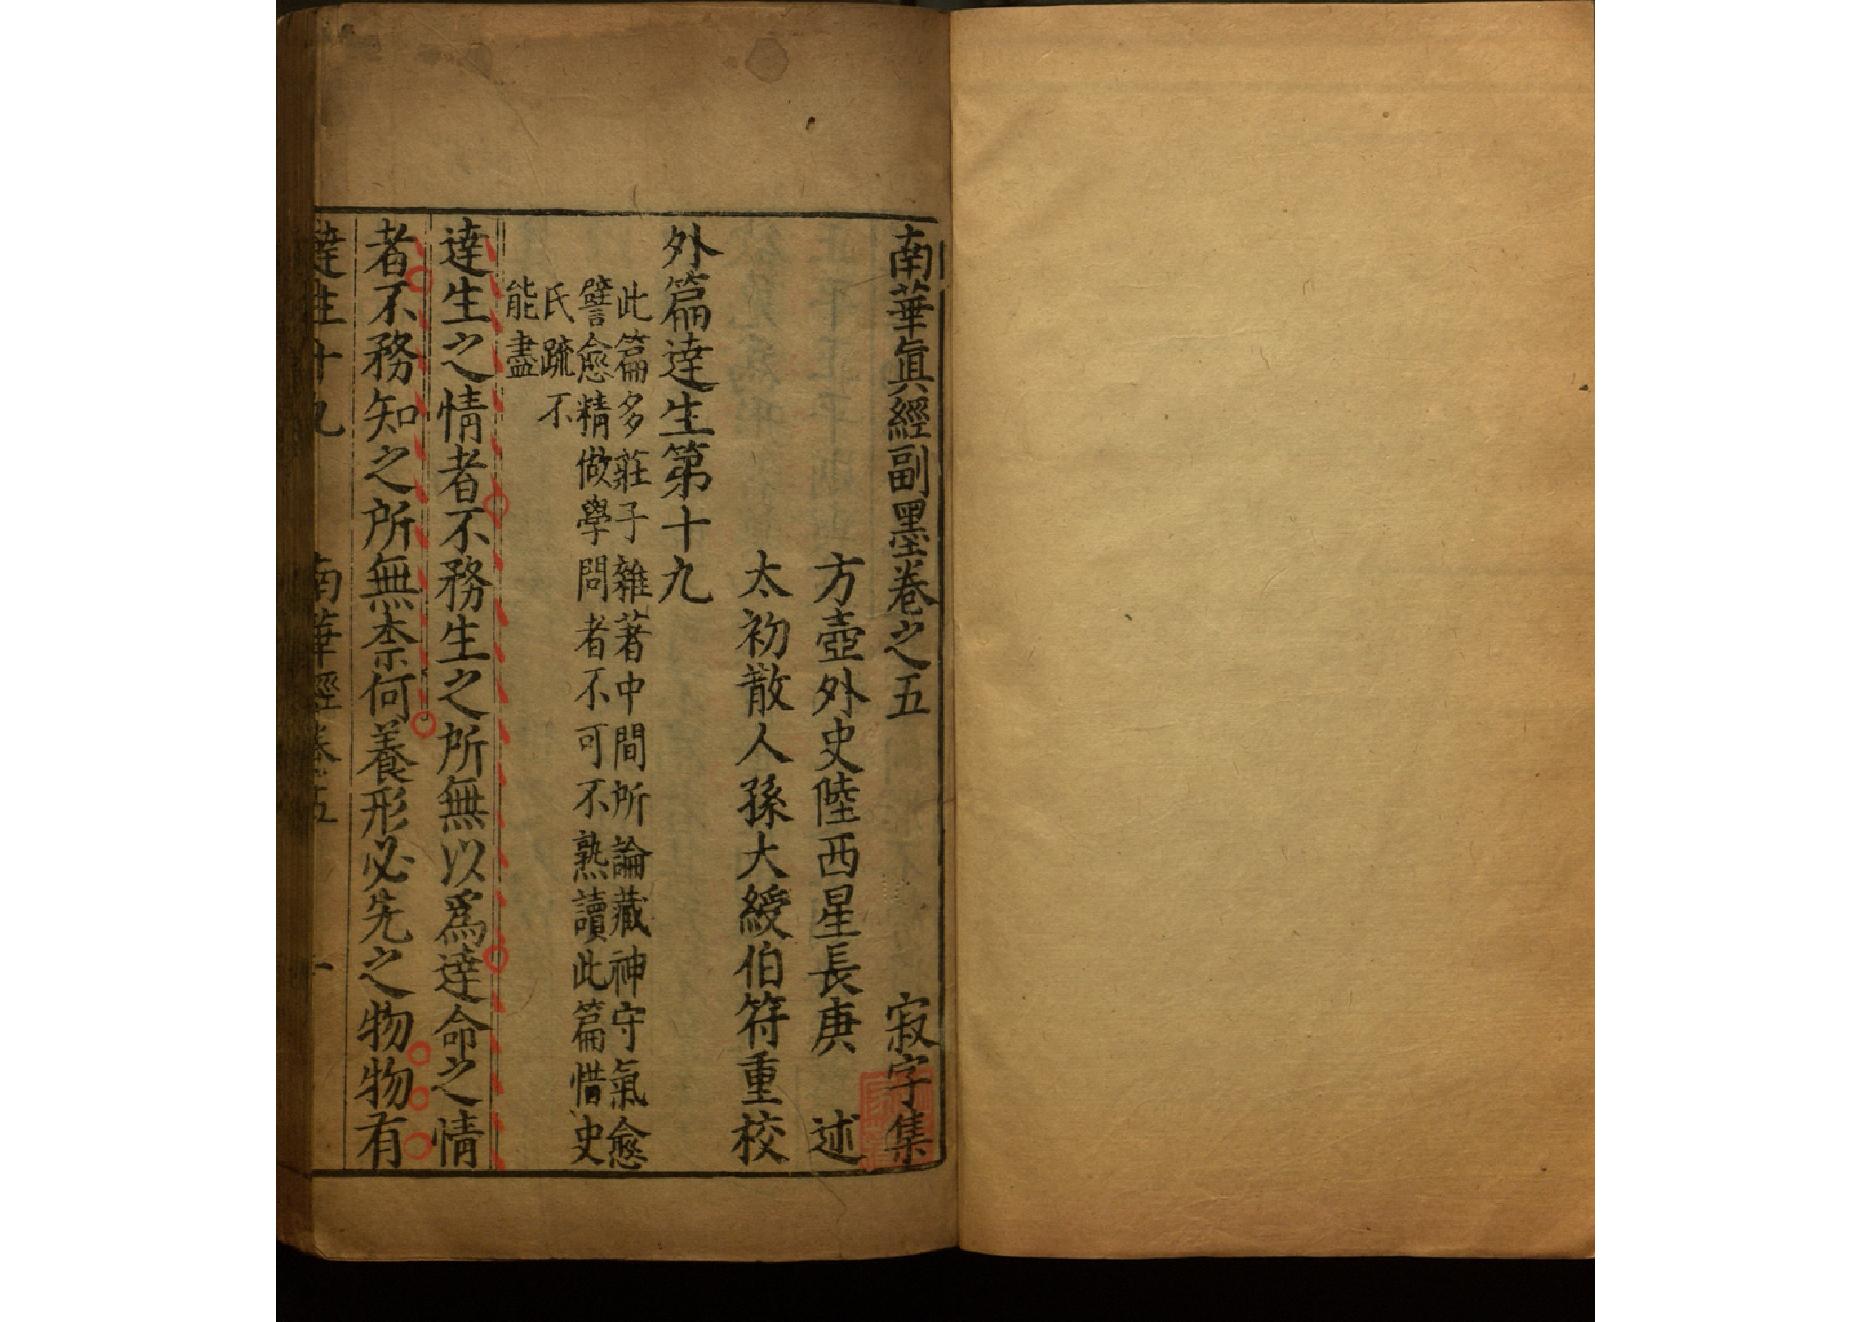 南華眞經副墨卷之五　寂字集
方壺外史陸西星長庚　述
太初散人孫大綬伯符重校
外篇達生第十九
此篇多莊子雜著中間所論藏神守氣愈
譬愈精做學問者不可不熟讀此篇惜史
氏䟽不
能盡
達生之情者不務生之所無以爲達命之情
者不務知之所無柰何養形必先之物物有
達生十九　南華經卷五　一